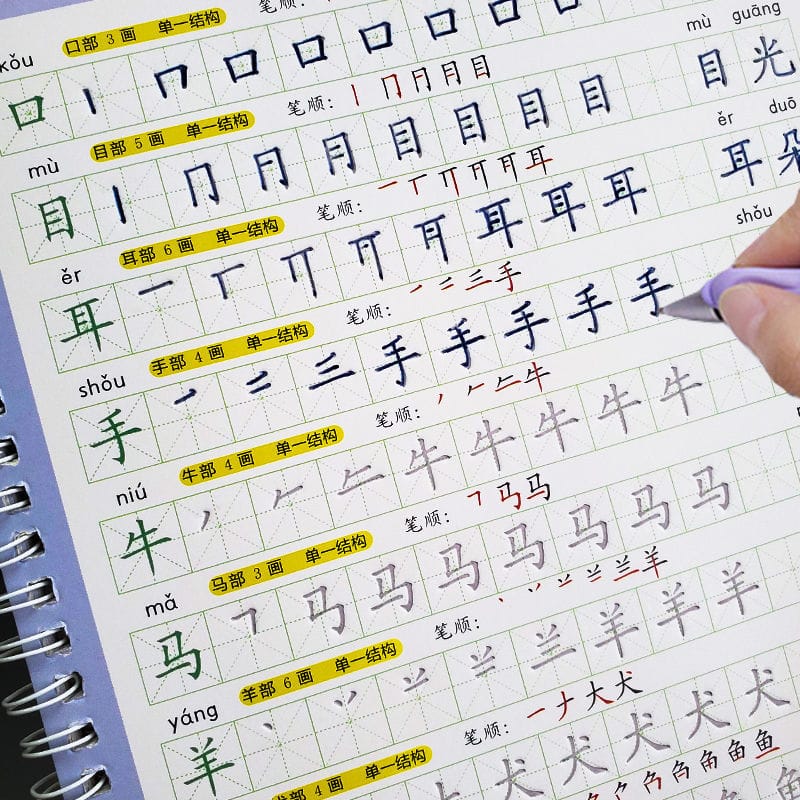 kǒu 口部 3 画 单一结构 笔顺
口 丨 冂 口 口 口 口 口 口
mù 目部 5 画 单一结构 笔顺: 丨 冂 月 目 mù guāng
目 丨 冂 月 目 目 目 目 目 光
ěr 耳部 6 画 单一结构 笔顺: 一 丅 丌 耳 ěr duō
耳 一 丅 丌 耳 耳 耳 耳 朵
shǒu 手部 4 画 单一结构 笔顺: 一 二 三 手 shǒu
手 一 二 三 手 手 手 手 手
niú 牛部 4 画 单一结构 笔顺: 丿 𠂉 牛
牛 丿 𠂉 牛 牛 牛 牛 牛
mǎ 马部 3 画 单一结构 笔顺: ㇕ 马 马
马 ㇕ 马 马 马 马 马 马 马
yáng 羊部 6 画 单一结构 笔顺: 丶 丷 兰 羊
羊 丶 丷 兰 羊 羊 羊
犬部 4 画 单一结构 笔顺: 一 ナ 大 犬
犬 犬 犬 犬 犬
鱼